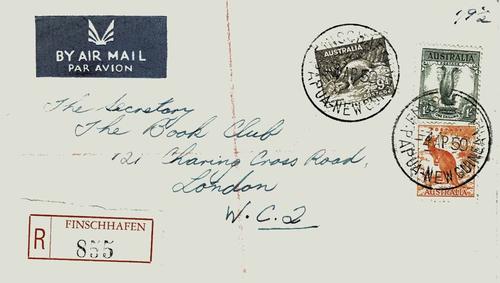 19½
BY AIR MAIL
PAR AVION
AUSTRALIA
AUSTRALIA
PAPUA-NEW GUINEA
4 AP 50
PAPUA-NEW GUINEA
AUSTRALIA
The Secretary
The Book Club
121 Charing Cross Road,
London
W.C.2
R
FINSCHHAFEN
855